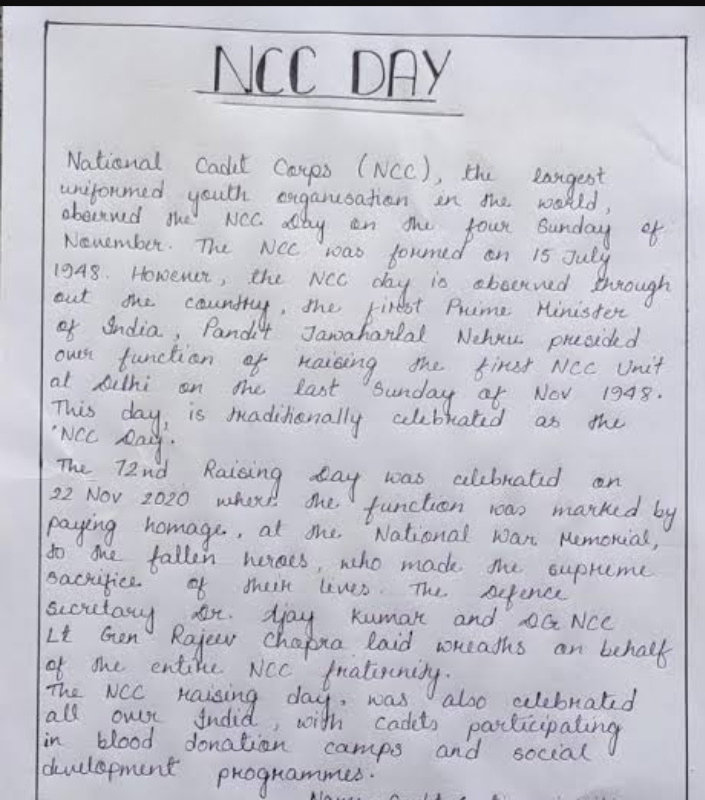 NCC DAY
National Cadet Corps (NCC), the largest
uniformed youth organisation in the world,
observed the NCC Day on the four Sunday of
November. The NCC was formed on 15 July
1948. However, the NCC day is observed through
out the country, the first Prime Minister
of India, Pandit Jawaharlal Nehru presided
over function of raising the first NCC Unit
at Delhi on the last Sunday of Nov 1948.
This day, is traditionally celebrated as the
'NCC Day.
The 72nd Raising Day was celebrated on
22 Nov 2020 where the function was marked by
paying homage, at the National War Memorial,
to the fallen heroes, who made the supreme
sacrifice of their lives. The Defence
Secretary Dr. Ajay Kumar and DG NCC
Lt Gen Rajeev Chopra laid wreaths on behalf
of the entire NCC fraternity.
The NCC raising day, was also celebrated
all over India, with cadets participating
in blood donation camps and social
development programmes.